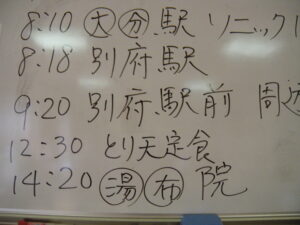 8:10 大分駅 ソニック
8:18 別府駅
9:20 別府駅前 周辺
12:30 とり天定食
14:20 湯布院